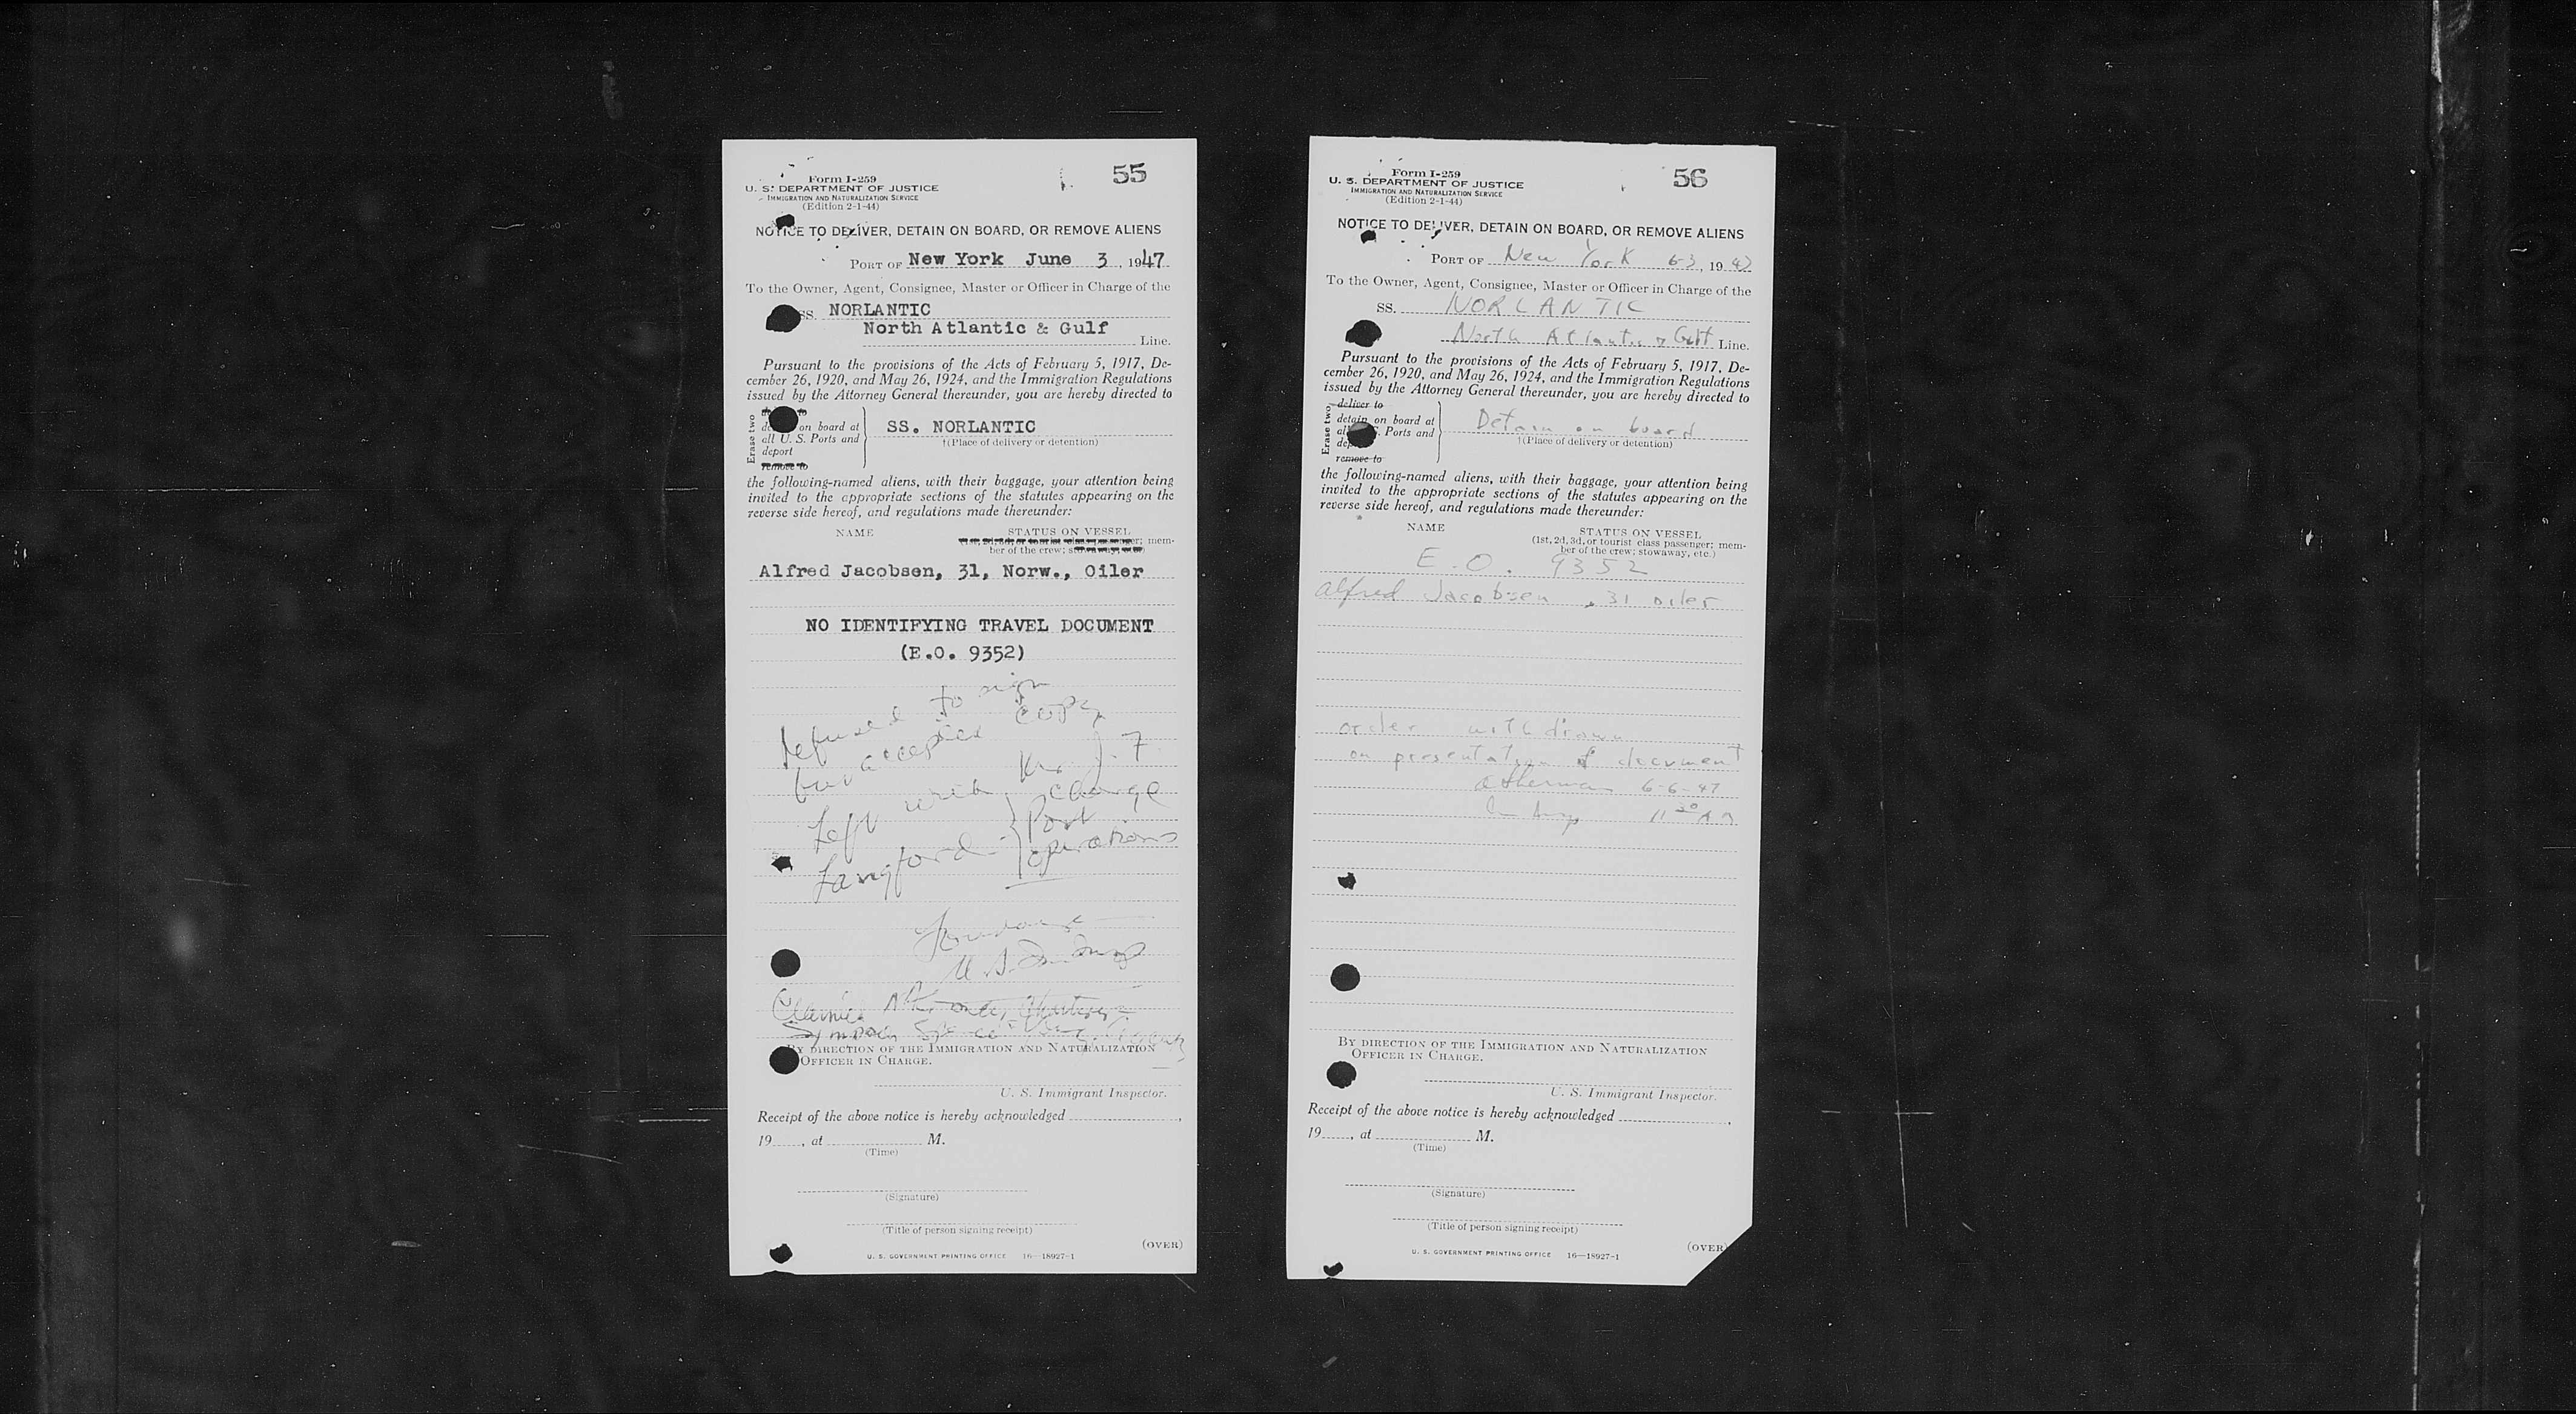 55
Form I-259
U. S. DEPARTMENT OF JUSTICE
IMMIGRATION AND NATURALIZATION SERVICE
(Edition 2-1-44)
NOTICE TO DELIVER, DETAIN ON BOARD, OR REMOVE ALIENS
PORT OF New York June 3, 1947
To the Owner, Agent, Consignee, Master or Officer in Charge of the
SS. NORLANTIC
North Atlantic & Gulf
Line.
Pursuant to the provisions of the Acts of February 5, 1917, De-
cember 26, 1920, and May 26, 1924, and the Immigration Regulations
issued by the Attorney General thereunder, you are hereby directed to
Erase two
on board at
all U. S. Ports and
deport
remove to
SS. NORLANTIC
†(Place of delivery or detention)
the following-named aliens, with their baggage, your attention being
invited to the appropriate sections of the statutes appearing on the
reverse side hereof, and regulations made thereunder:
NAME STATUS ON VESSEL
mem-
ber of the crew;
Alfred Jacobsen, 31, Norw., Oiler
NO IDENTIFYING TRAVEL DOCUMENT
(E.O. 9352)
Refused to sign
but accepted copy
Left with Mr. J. F.
Langford } charge
Port
operations
BY DIRECTION OF THE IMMIGRATION AND NATURALIZATION
OFFICER IN CHARGE.
U. S. Immigrant Inspector.
Receipt of the above notice is hereby acknowledged
19, at M.
(Time)
(Signature)
(Title of person signing receipt)
(OVER)
U. S. GOVERNMENT PRINTING OFFICE 16—18927-1
56
Form I-259
U. S. DEPARTMENT OF JUSTICE
IMMIGRATION AND NATURALIZATION SERVICE
(Edition 2-1-44)
NOTICE TO DELIVER, DETAIN ON BOARD, OR REMOVE ALIENS
PORT OF New York 6-3, 1947
To the Owner, Agent, Consignee, Master or Officer in Charge of the
SS. NORLANTIC
North Atlantic & Gulf Line.
Pursuant to the provisions of the Acts of February 5, 1917, De-
cember 26, 1920, and May 26, 1924, and the Immigration Regulations
issued by the Attorney General thereunder, you are hereby directed to
Erase two
deliver to
detain on board at
all U. S. Ports and
remove to
Detain on board
†(Place of delivery or detention)
the following-named aliens, with their baggage, your attention being
invited to the appropriate sections of the statutes appearing on the
reverse side hereof, and regulations made thereunder:
NAME STATUS ON VESSEL
(1st, 2d, 3d, or tourist class passenger; mem-
ber of the crew; stowaway, etc.)
E.O. 9352
Alfred Jacobsen, 31 oiler
order withdrawn
on presentation of document
6-6-47
11 30 AM
BY DIRECTION OF THE IMMIGRATION AND NATURALIZATION
OFFICER IN CHARGE.
U. S. Immigrant Inspector.
Receipt of the above notice is hereby acknowledged
19, at M.
(Time)
(Signature)
(Title of person signing receipt)
(OVER)
U. S. GOVERNMENT PRINTING OFFICE 16—18927-1